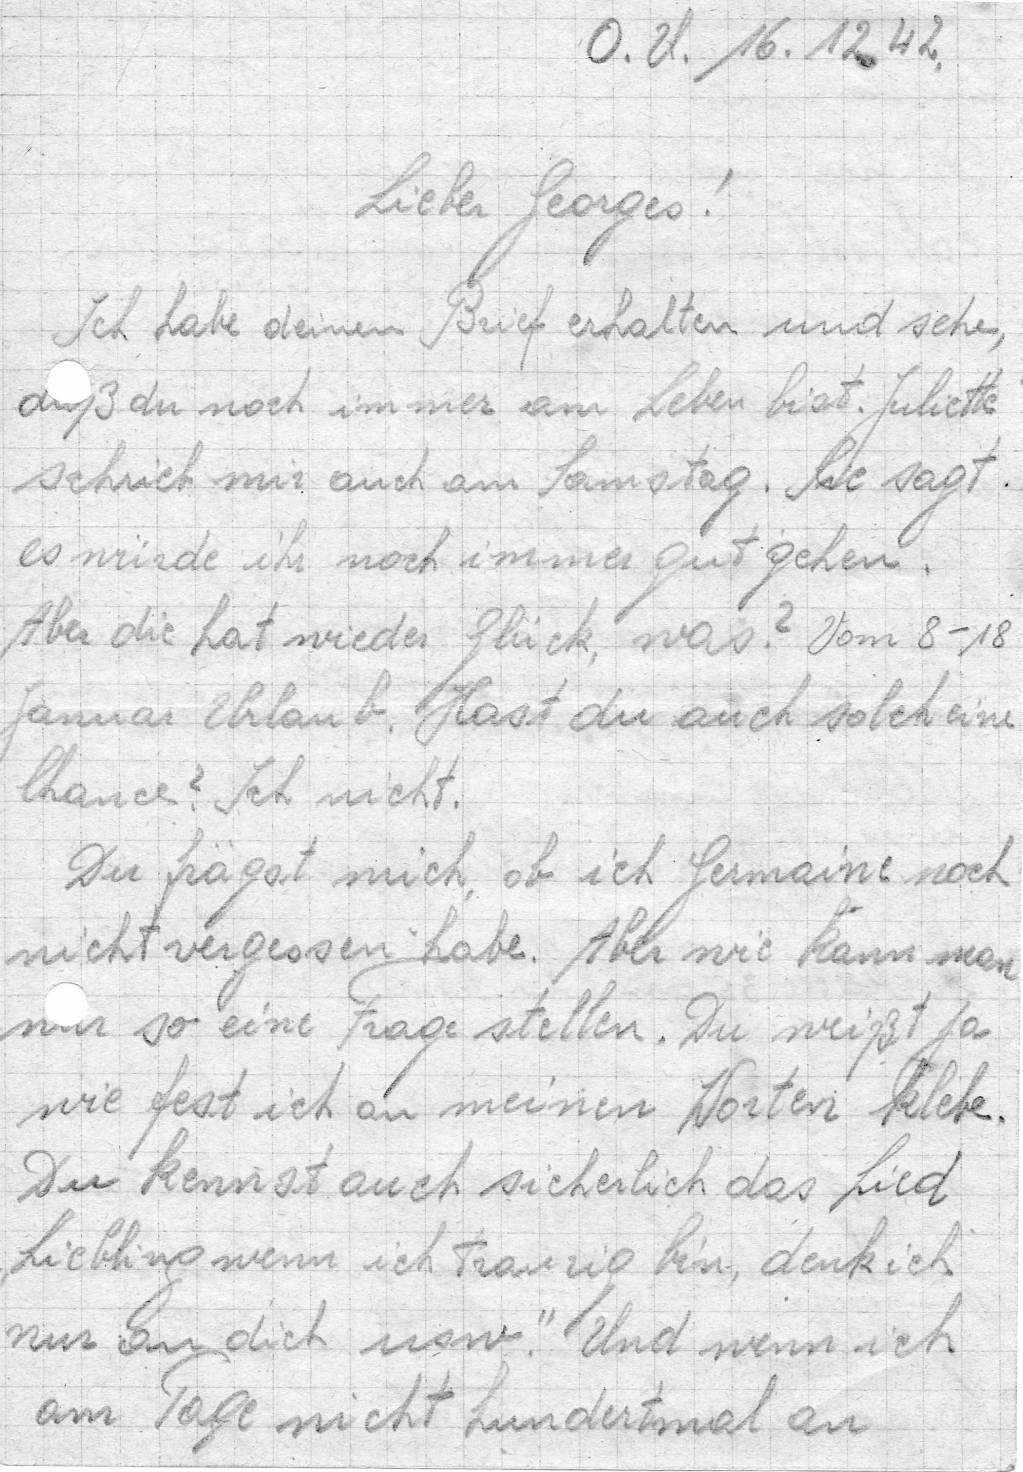 O. U. 16. 12. 42.
Lieber Georges!
Ich habe deinen Brief erhalten und sehe,
daß du noch immer am Leben bist. Juliette
schrieb mir auch am Samstag. Sie sagt
es würde ihr noch immer gut gehen.
Aber die hat wieder Glück, was? Vom 8-18
Januar Urlaub. Hast du auch solch eine
Chance? Ich nicht.
Du frägst mich, ob ich Germaine noch
nicht vergessen habe. Aber wie kann man
nur so eine Frage stellen. Du weißt ja
wie fest ich an meinen Worten klebe.
Du kennst auch sicherlich das Lied
„Liebling wenn ich traurig bin, denk ich
nur an dich usw." Und wenn ich
am Tage nicht hundertmal an